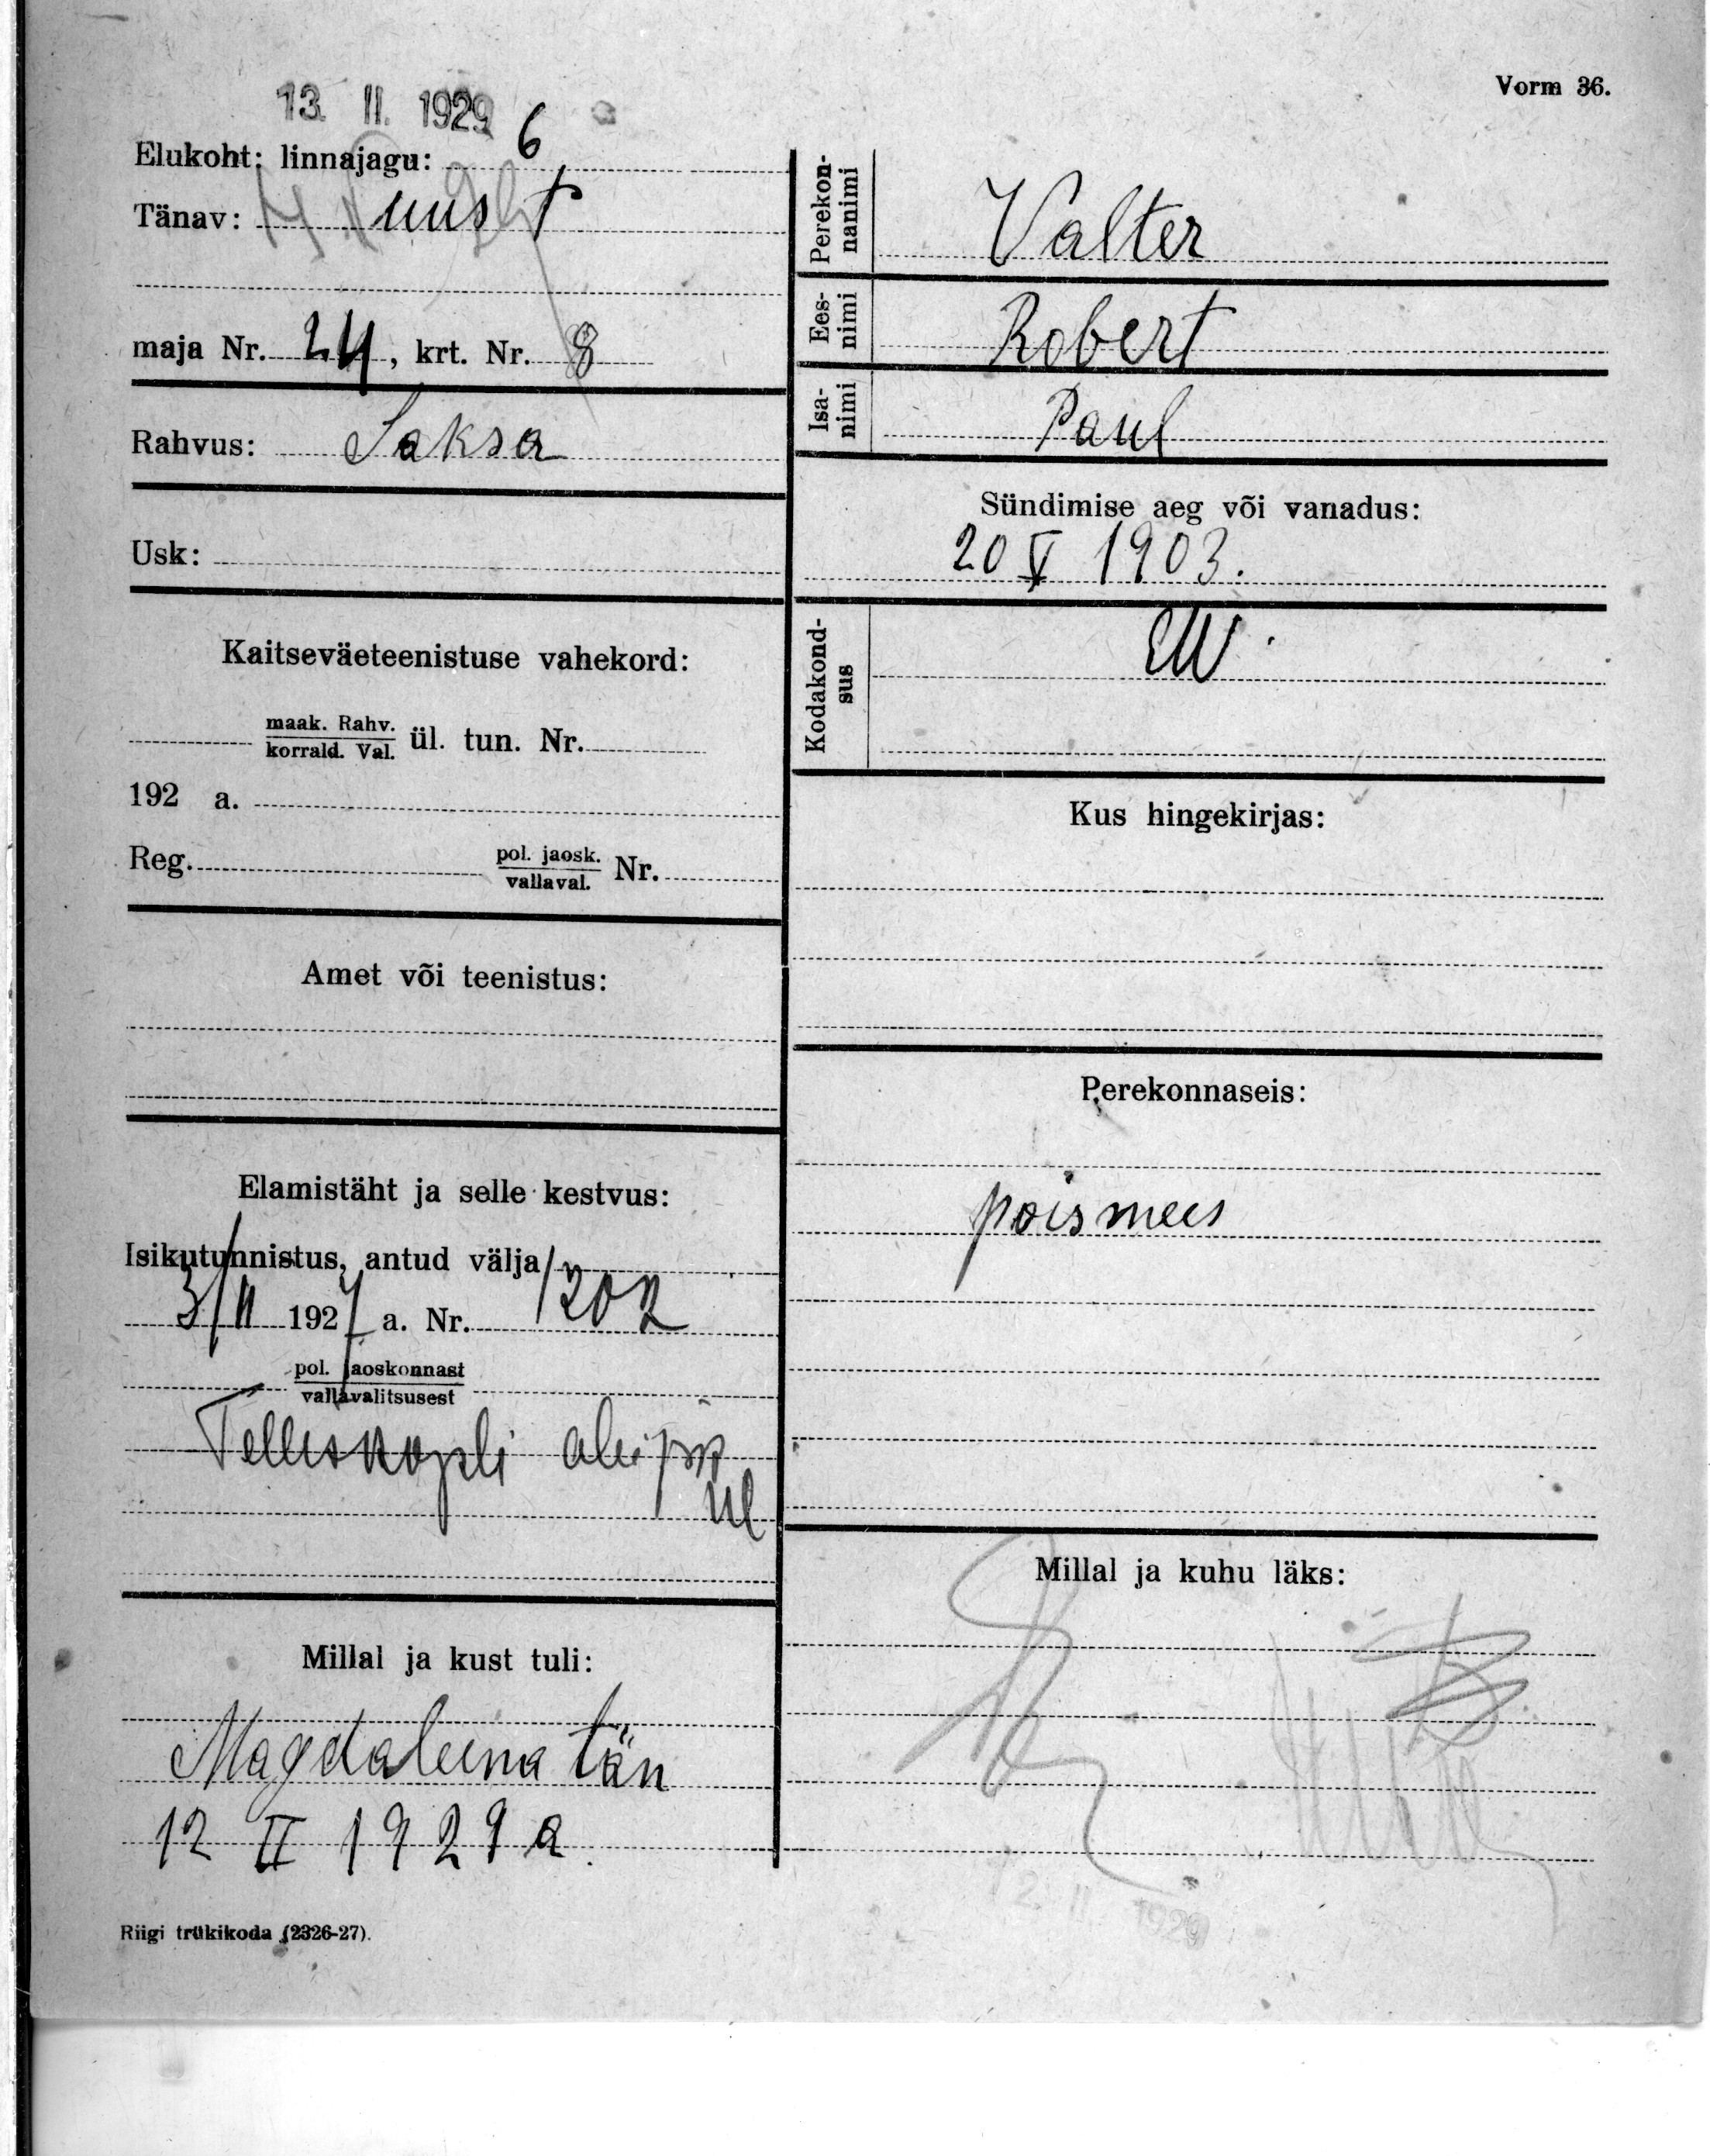 13. II. 1929
Vorm 36.
Elukoht: linnajagu: 6
Tänav: uus T
maja Nr. 24, krt. Nr. 8
Rahvus: Saksa
Usk:
Kaitseväeteenistuse vahekord:
maak. Rahv.
korrald. Val. ül. tun. Nr.
192 a.
Reg. pol. jaosk.
vallaval. Nr.
Amet või teenistus:
Elamistäht ja selle kestvus:
Isikutunnistus, antud välja
3/II 1927 a. Nr. 1202
pol. jaoskonnast
vallavalitsusest
Telliskopli
Millal ja kust tuli:
Magdaleena tän
12 II 1929 a.
Riigi trükikoda (2326-27).
Perekonnanimi Valter
Eesnimi Robert
Isanimi Paul
Sündimise aeg või vanadus:
20 V 1903.
Kodakondsus EW
Kus hingekirjas:
Perekonnaseis:
poismees
Millal ja kuhu läks:
12. II 1929